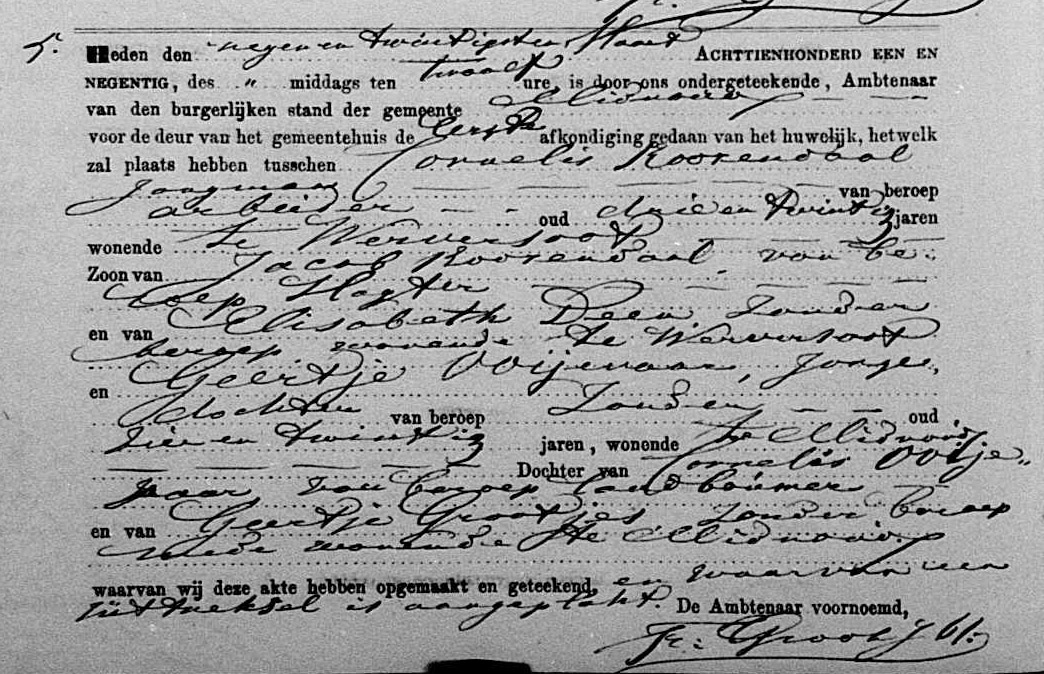 5. Heden den negen en twintigsten Maart ACHTTIENHONDERD EEN EN
NEGENTIG, des „ middags ten twaalf ure, is door ons ondergeteekende, Ambtenaar
van den burgerlijken stand der gemeente Midwoud
voor de deur van het gemeentehuis de eerste afkondiging gedaan van het huwelijk, hetwelk
zal plaats hebben tusschen Cornelis Roozendaal
Jongman van beroep
arbeider oud drie en twintig jaren
wonende te Wervershoof
Zoon van Jacob Roozendaal van be-
roep Slagter
en van Elisabeth Deen zonder
beroep wonende te Wervershoof
en Geertje Ooijevaar, Jonge
dochter van beroep Zonder oud
vier en twintig jaren, wonende te Midwoud
Dochter van Cornelis Ooije„
vaar van beroep landbouwer
en van Geertje Grootjes zonder beroep
mede wonende te Midwoud
waarvan wij deze akte hebben opgemaakt en geteekend, en waarvan een
uittreksel is aangeplakt. De Ambtenaar voornoemd,
Groot